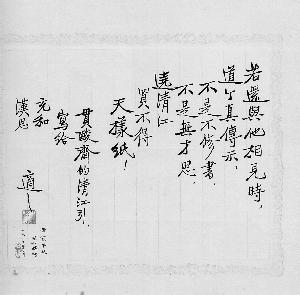 若還與他相見時，
道个真傳示，
不是不修書，
不是無才思，
遶清江，
買不得
天樣紙！
貫酸齋的清江引，
寫給
充和
漢思
適之